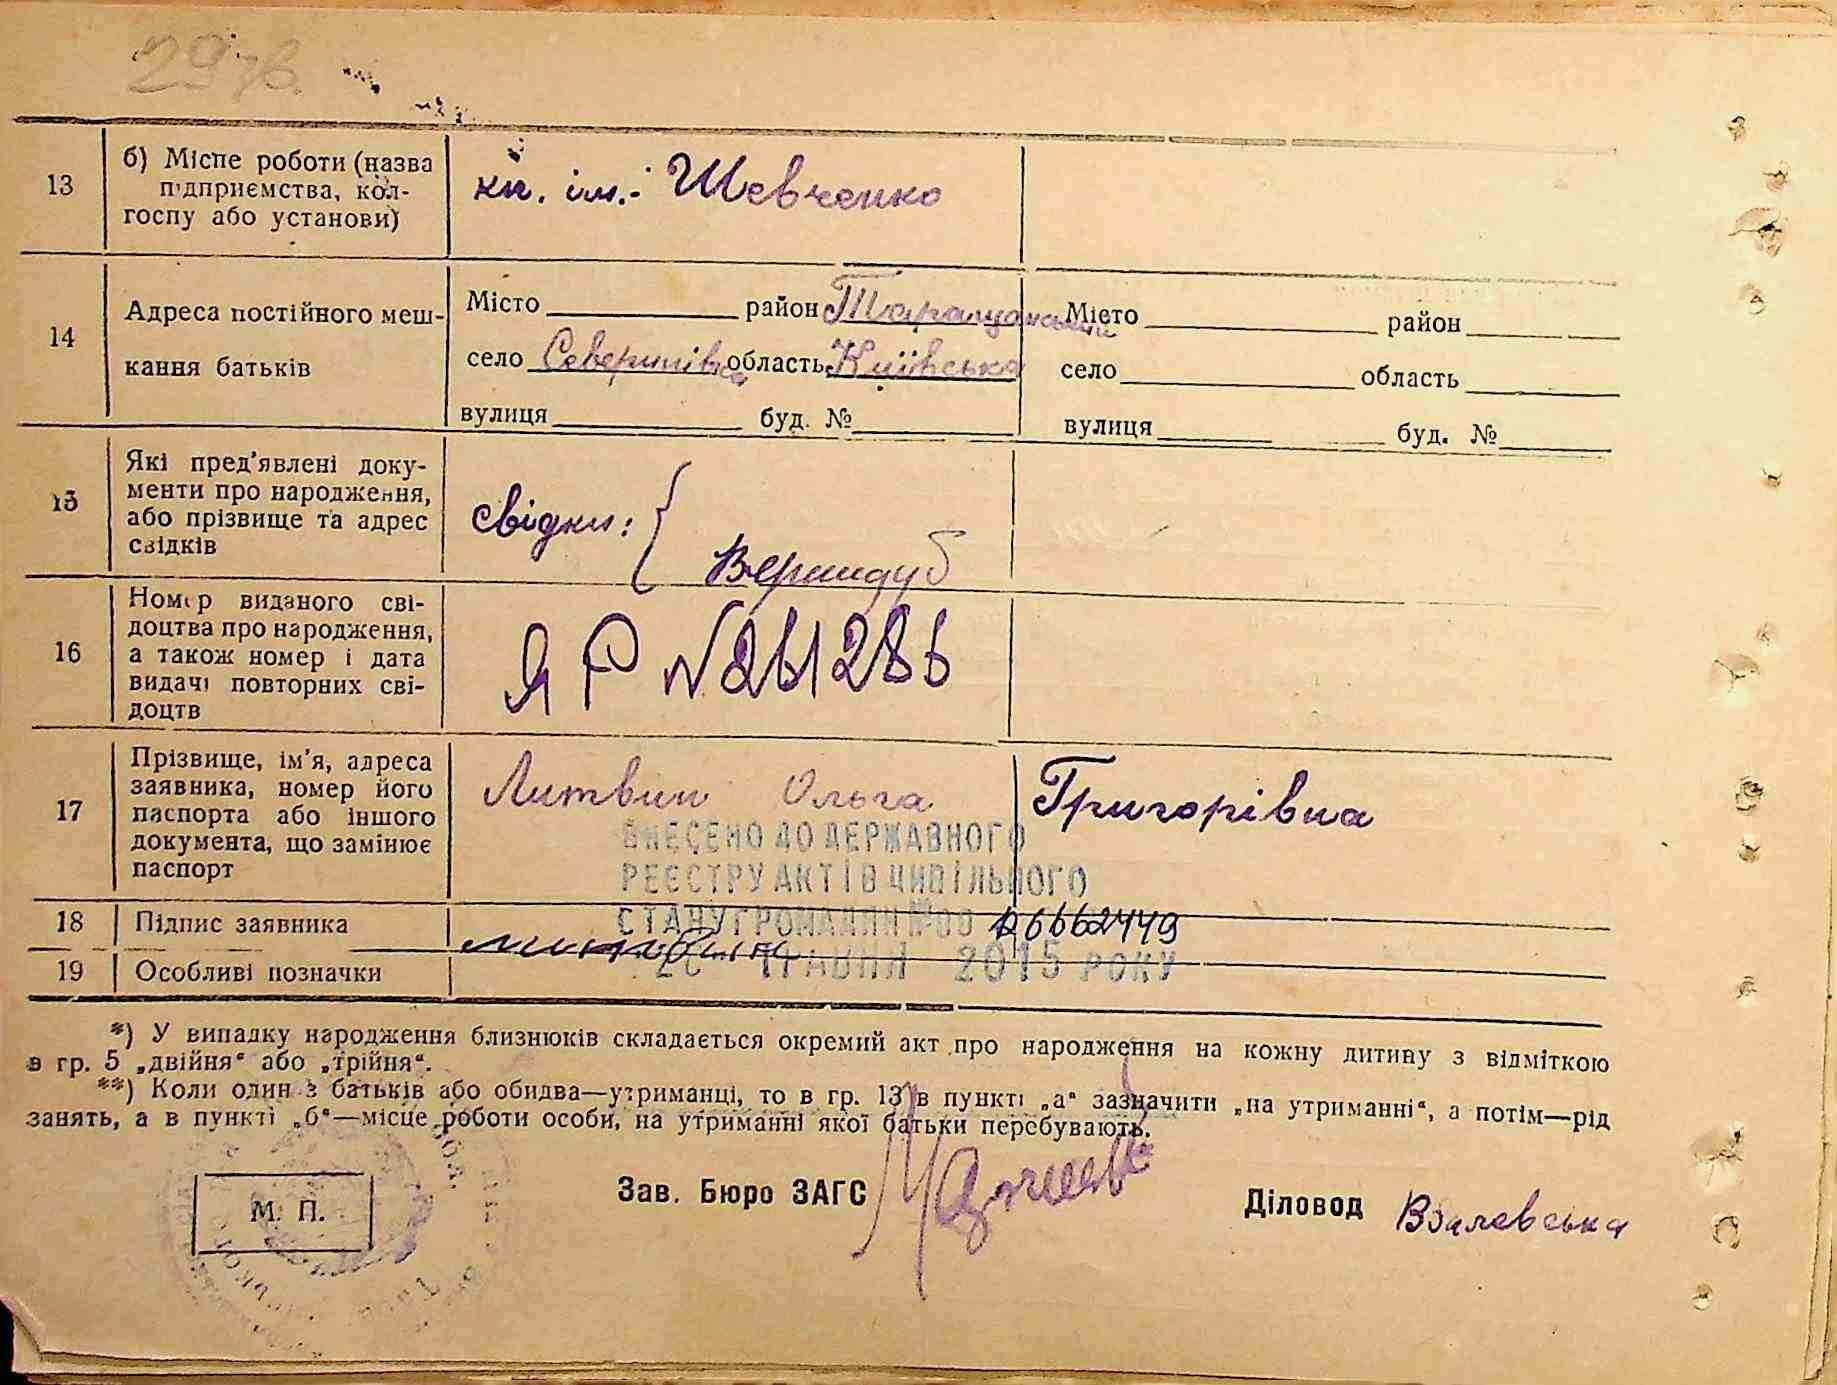 29 зв.
13 б) Місце роботи (назва підприємства, колгоспу або установи)
кп. ім. Шевченко
14 Адреса постійного мешкання батьків
Місто район Таращанський
село Северинівка область Київська
вулиця буд. №
Місто район
село область
вулиця буд. №
15 Які пред'явлені документи про народження, або прізвище та адрес свідків
свідки: { Вернидуб
16 Номер виданого свідоцтва про народження, а також номер і дата видачі повторних свідоцтв
ЯР №261286
17 Прізвище, ім'я, адреса заявника, номер його паспорта або іншого документа, що замінює паспорт
Литвин Ольга Григорівна
ВНЕСЕНО ДО ДЕРЖАВНОГО
РЕЄСТРУ АКТІВ ЦИВІЛЬНОГО
СТАНУ ГРОМАДЯН №00 26662449
ТРАВНЯ 2015 РОКУ
18 Підпис заявника
19 Особливі позначки
*) У випадку народження близнюків складається окремий акт про народження на кожну дитину з відміткою
в гр. 5 „двійня“ або „трійня“.
**) Коли один з батьків або обидва—утриманці, то в гр. 13 в пункті „а“ зазначити „на утриманні“, а потім—рід
занять, а в пункті „б“—місце роботи особи, на утриманні якої батьки перебувають.
М. П.
Зав. Бюро ЗАГС
Діловод